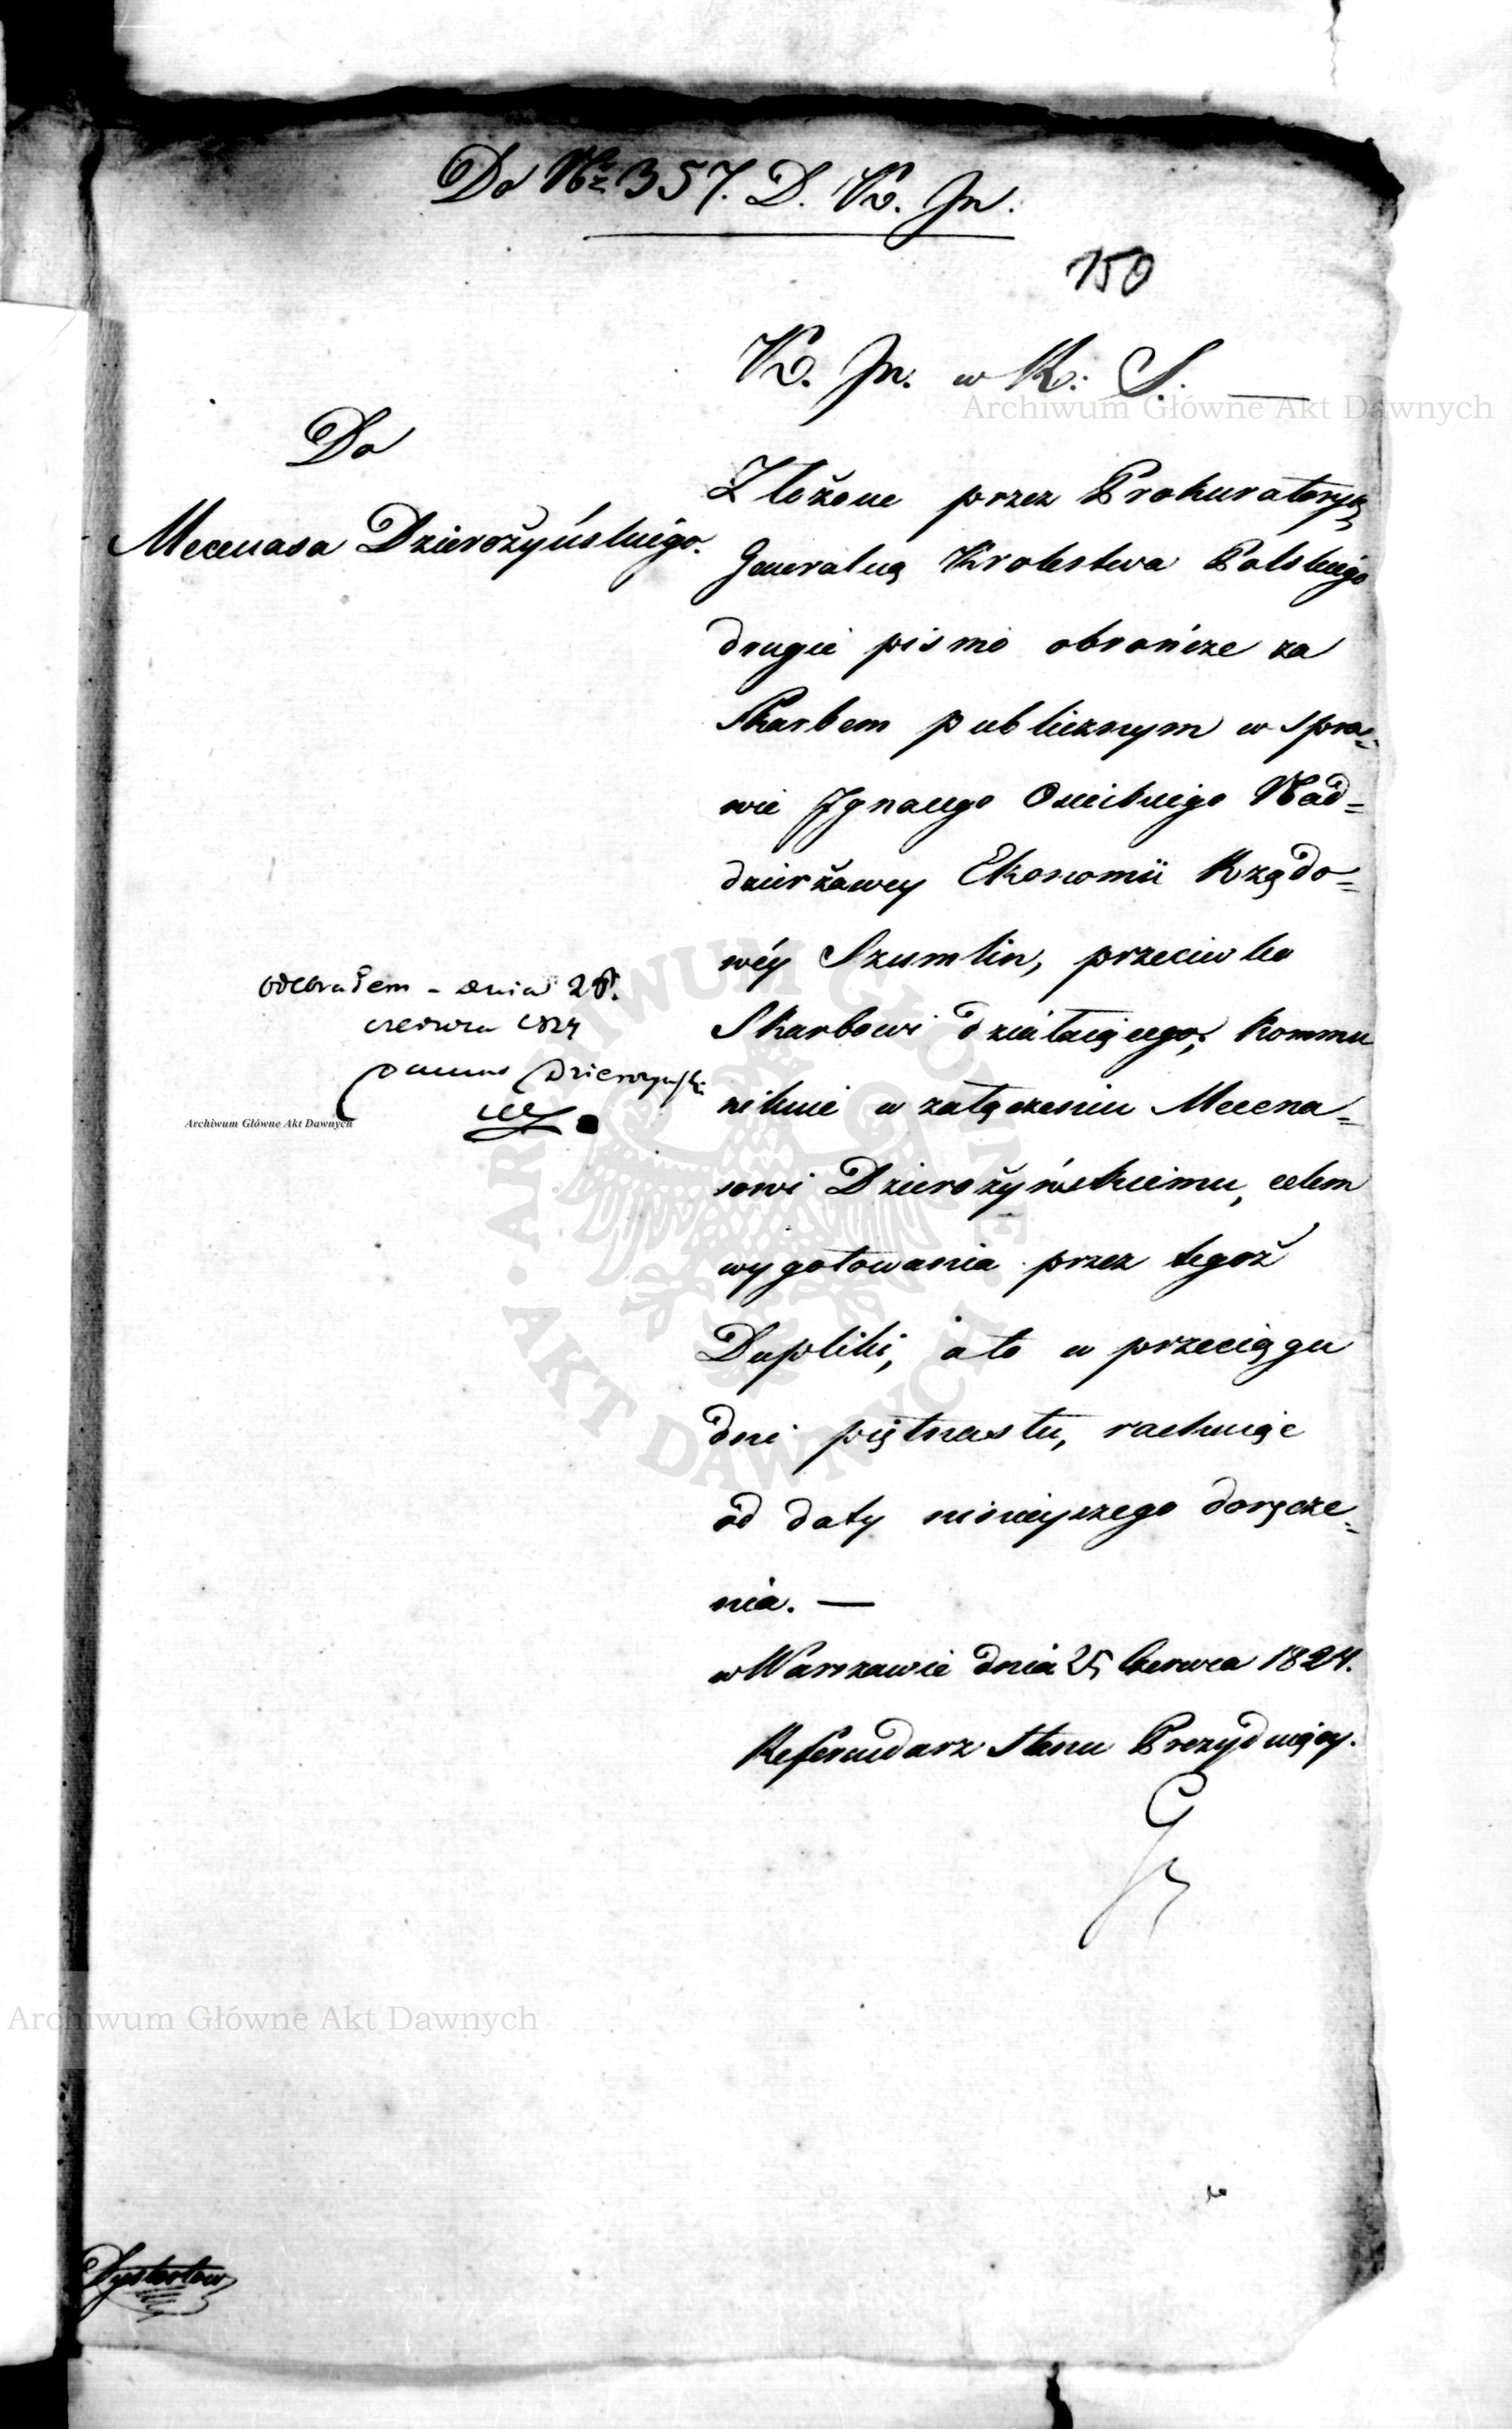 Do Nr 357. D. K. In.
150
K. In. w K. S.
Do
Mecenasa Dzierożyńskiego.
Złożone przez Prokuratoryą
Generalną Krolestwa Polskiego
drugie pismo obrończe za
Skarbem publicznym w spra=
wie Ignacego Oncibnigo Nad=
dzierżawcy Ekonomii Rządo=
wéy Szumlin, przeciwko
Skarbowi działaiącego, kommu
nikuie w załączeniu Mecena=
sowi Dzierożyńskiemu, celem
wygotowania przez tegoż
Dupliki, a to w przeciągu
dni piętnastu, rachuiąc
od daty ninieyszego doręcze=
nia. —
w Warszawie dnia 25 Czerwca 1824.
Referendarz Stanu Prezyduiący.
odebrałem - dnia 28.
czerwca 1824
Dzierożyński
Archiwum Główne Akt Dawnych
Archiwum Główne Akt Dawnych
Archiwum Główne Akt Dawnych
ARCHIWUM GŁÓWNE • AKT DAWNYCH •